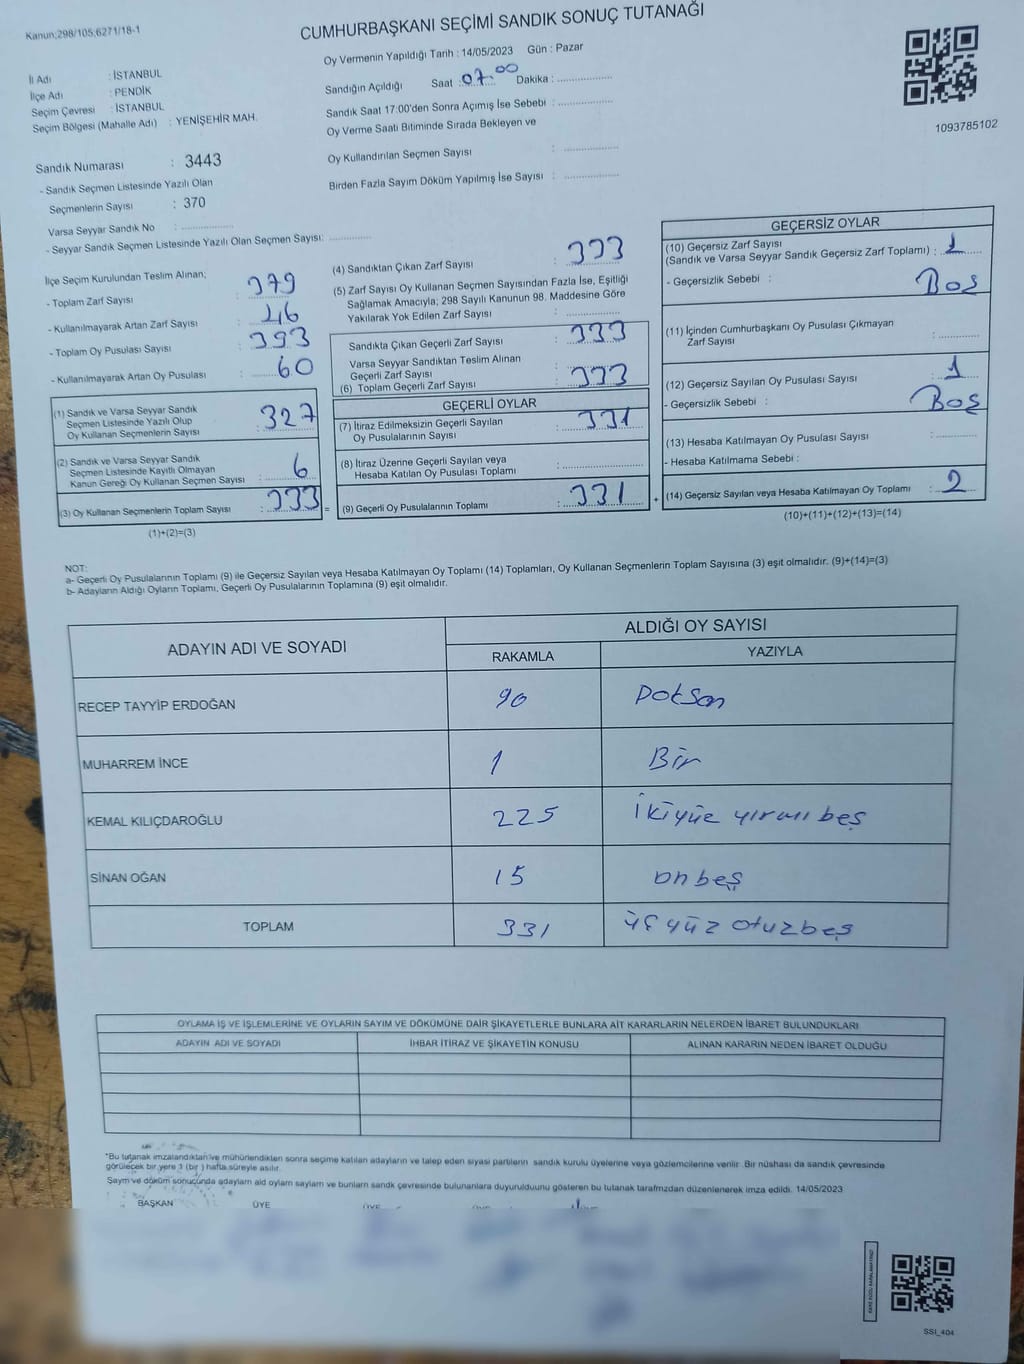 Kanun;298/105;6271/18-1
CUMHURBAŞKANI SEÇİMİ SANDIK SONUÇ TUTANAĞI
1093785102
İl Adı : İSTANBUL
İlçe Adı : PENDİK
Seçim Çevresi : İSTANBUL
Seçim Bölgesi (Mahalle Adı) : YENİŞEHİR MAH.
Sandık Numarası : 3443
- Sandık Seçmen Listesinde Yazılı Olan
Seçmenlerin Sayısı : 370
Varsa Seyyar Sandık No : ................
- Seyyar Sandık Seçmen Listesinde Yazılı Olan Seçmen Sayısı: .............
Oy Vermenin Yapıldığı Tarih : 14/05/2023 Gün : Pazar
Sandığın Açıldığı Saat : 07.00 Dakika : ................
Sandık Saat 17:00'den Sonra Açımış İse Sebebi : ................
Oy Verme Saati Bitiminde Sırada Bekleyen ve
Oy Kullandırılan Seçmen Sayısı : ................
Birden Fazla Sayım Döküm Yapılmış İse Sayısı : ................
İlçe Seçim Kurulundan Teslim Alınan;
- Toplam Zarf Sayısı : 379
- Kullanılmayarak Artan Zarf Sayısı : 46
- Toplam Oy Pusulası Sayısı : 393
- Kullanılmayarak Artan Oy Pusulası : 60
(1) Sandık ve Varsa Seyyar Sandık
Seçmen Listesinde Yazılı Olup
Oy Kullanan Seçmenlerin Sayısı : 327
(2) Sandık ve Varsa Seyyar Sandık
Seçmen Listesinde Kayıtlı Olmayan
Kanun Gereği Oy Kullanan Seçmen Sayısı : 6
(3) Oy Kullanan Seçmenlerin Toplam Sayısı : 333 =
(1)+(2)=(3)
(4) Sandıktan Çıkan Zarf Sayısı : 333
(5) Zarf Sayısı Oy Kullanan Seçmen Sayısından Fazla İse, Eşitliği
Sağlamak Amacıyla; 298 Sayılı Kanunun 98. Maddesine Göre
Yakılarak Yok Edilen Zarf Sayısı : ................
Sandıkta Çıkan Geçerli Zarf Sayısı : 333
Varsa Seyyar Sandıktan Teslim Alınan
Geçerli Zarf Sayısı : ................
(6) Toplam Geçerli Zarf Sayısı : 333
GEÇERLİ OYLAR
(7) İtiraz Edilmeksizin Geçerli Sayılan
Oy Pusulalarının Sayısı : 331
(8) İtiraz Üzerine Geçerli Sayılan veya
Hesaba Katılan Oy Pusulası Toplamı : ................
(9) Geçerli Oy Pusulalarının Toplamı : 331 +
GEÇERSİZ OYLAR
(10) Geçersiz Zarf Sayısı
(Sandık ve Varsa Seyyar Sandık Geçersiz Zarf Toplamı) : 1
- Geçersizlik Sebebi : Boş
(11) İçinden Cumhurbaşkanı Oy Pusulası Çıkmayan
Zarf Sayısı : ............
(12) Geçersiz Sayılan Oy Pusulası Sayısı : 1
- Geçersizlik Sebebi : Boş
(13) Hesaba Katılmayan Oy Pusulası Sayısı : ............
- Hesaba Katılmama Sebebi :
(14) Geçersiz Sayılan veya Hesaba Katılmayan Oy Toplamı : 2
(10)+(11)+(12)+(13)=(14)
NOT:
a- Geçerli Oy Pusulalarının Toplamı (9) ile Geçersiz Sayılan veya Hesaba Katılmayan Oy Toplamı (14) Toplamları, Oy Kullanan Seçmenlerin Toplam Sayısına (3) eşit olmalıdır. (9)+(14)=(3)
b- Adayların Aldığı Oyların Toplamı, Geçerli Oy Pusulalarının Toplamına (9) eşit olmalıdır.
ADAYIN ADI VE SOYADI ALDIĞI OY SAYISI
RAKAMLA YAZIYLA
RECEP TAYYİP ERDOĞAN 90 Doksan
MUHARREM İNCE 1 Bir
KEMAL KILIÇDAROĞLU 225 ikiyüz yirmi beş
SİNAN OĞAN 15 onbeş
TOPLAM 331 üçyüz otuzbeş
OYLAMA İŞ VE İŞLEMLERİNE VE OYLARIN SAYIM VE DÖKÜMÜNE DAİR ŞİKAYETLERLE BUNLARA AİT KARARLARIN NELERDEN İBARET BULUNDUKLARI
ADAYIN ADI VE SOYADI İHBAR İTİRAZ VE ŞİKAYETİN KONUSU ALINAN KARARIN NEDEN İBARET OLDUĞU
*Bu tutanak imzalandıktan ve mühürlendikten sonra seçime katılan adayların ve talep eden siyasi partilerin sandık kurulu üyelerine veya gözlemcilerine verilir. Bir nüshası da sandık çevresinde
görülecek bir yere 1 (bir ) hafta süreyle asılır.
Sayım ve döküm sonucunda adayların aldı oyların sayların ve bunların sandık çevresinde bulunanlara duyurulduunu gösteren bu tutanak tarafmzdan düzenlenerek imza edildi. 14/05/2023
BAŞKAN ÜYE
SSI_404